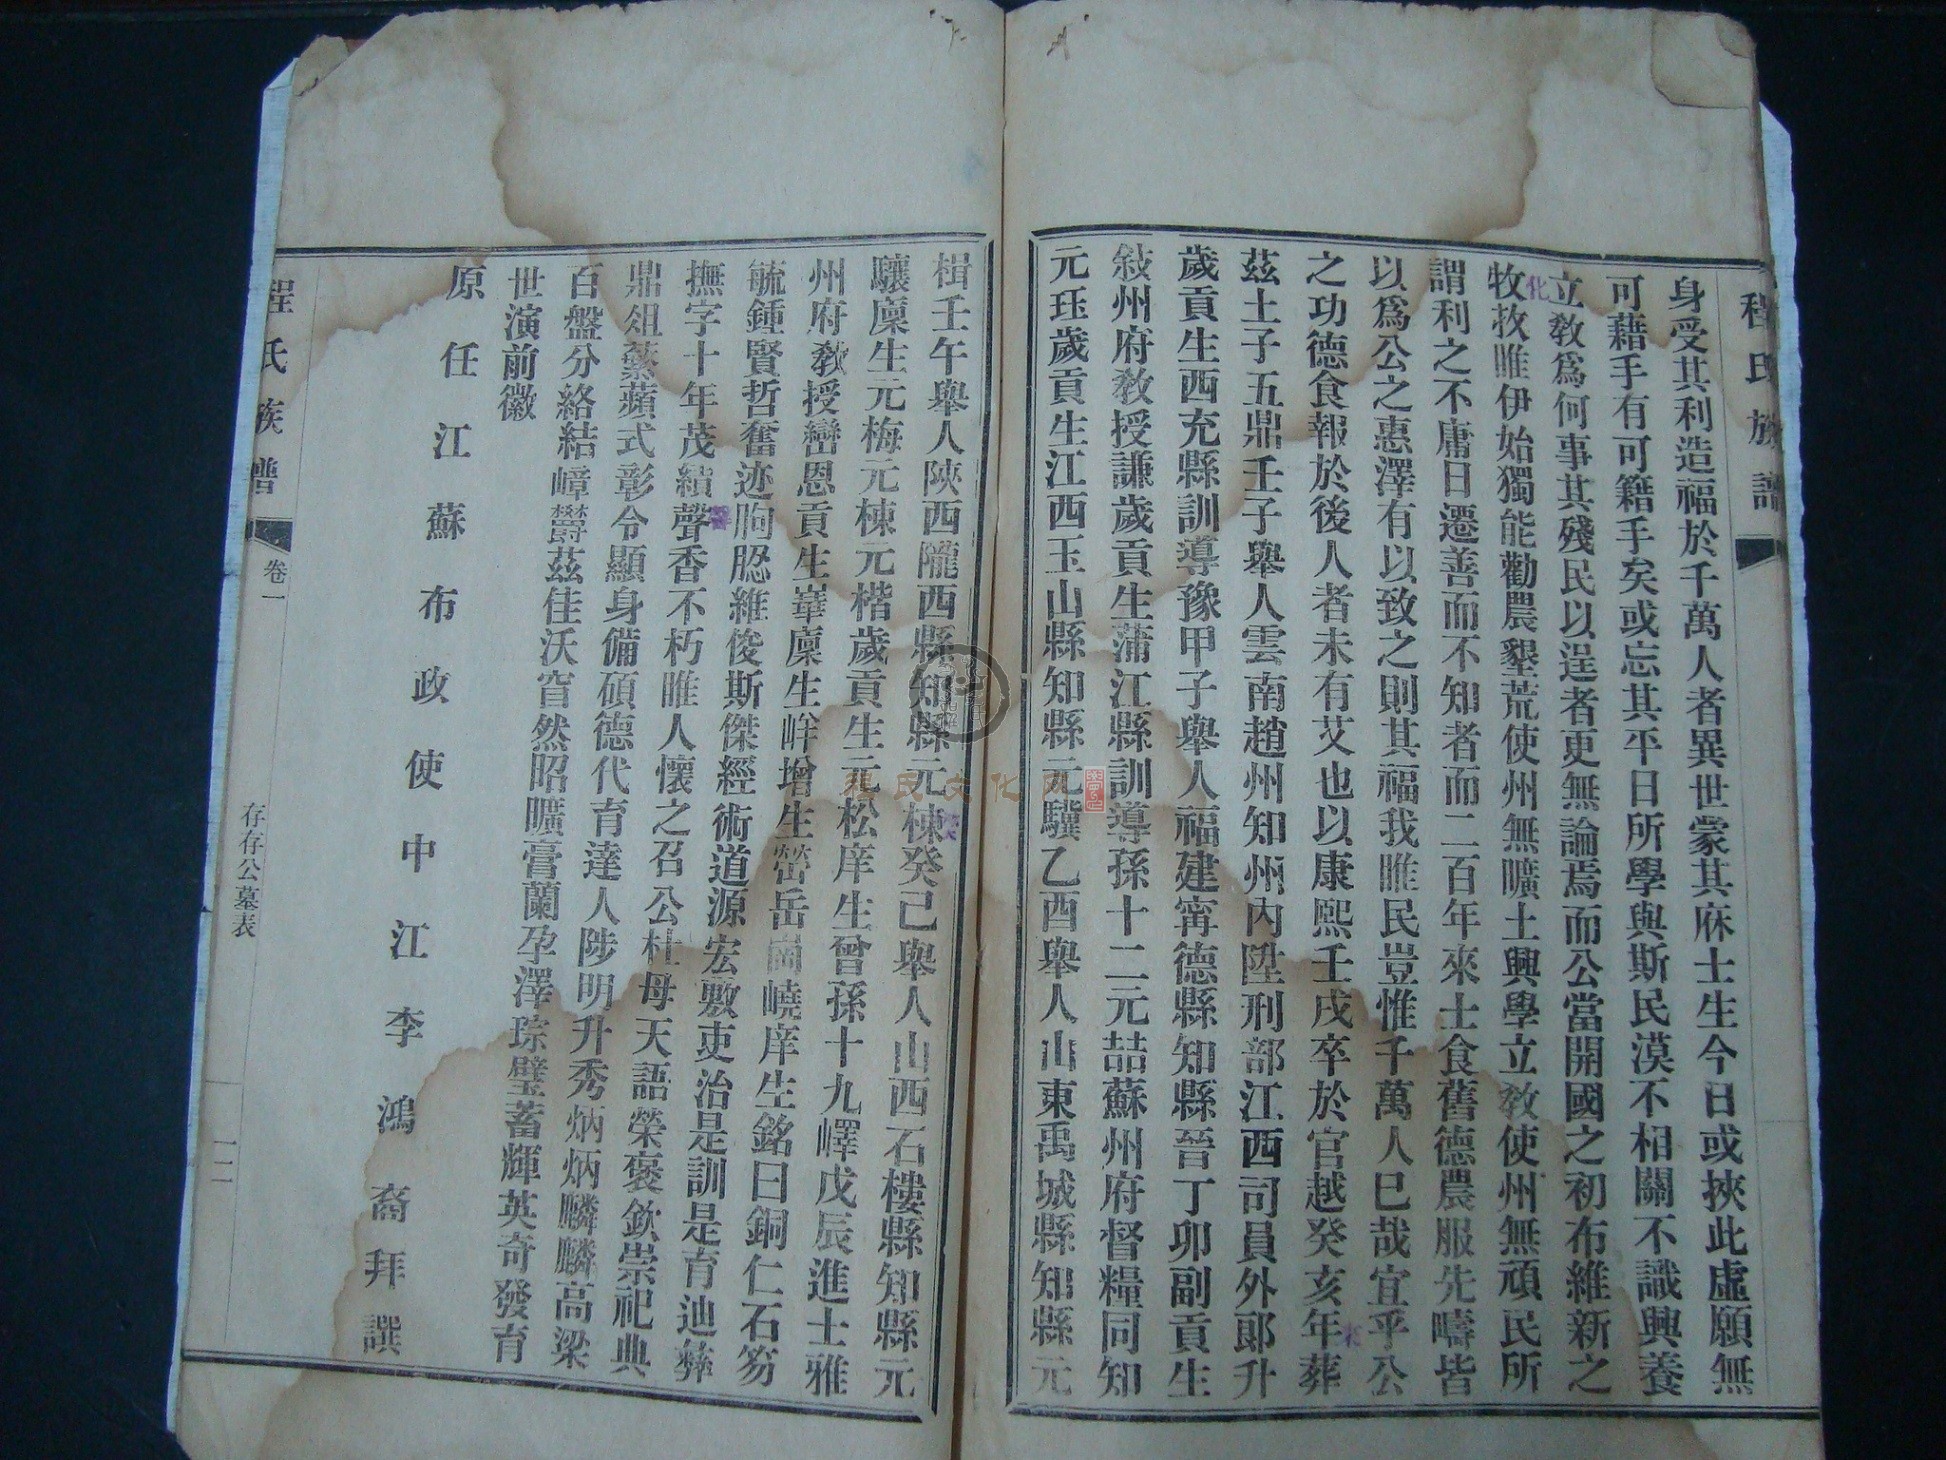 程氏族譜
身受其利造福於千萬人者異世蒙其庥士生今日或挾此虛願無
可藉手有可籍手矣或忘其平日所學與斯民漠不相關不識興養
立教爲何事其殘民以逞者更無論焉而公當開國之初布維新之
化
牧敉唯伊始獨能勸農墾荒使州無曠土興學立教使州無頑民所
謂利之不庸日遷善而不知者而二百年來士食舊德農服先疇皆
以爲公之惠澤有以致之則其福我睢民豈惟千萬人巳哉宜乎公
之功德食報於後人者未有艾也以康熙壬戌卒於官越癸亥年葬
來
茲土子五鼎壬子舉人雲南趙州知州內陞刑部江西司員外郎升
歲貢生西充縣訓導豫甲子舉人福建寗德縣知縣晉丁卯副貢生
敍州府敎授謙歲貢生蒲江縣訓導孫十二元喆蘇州府督糧同知
元珏歲貢生江西玉山縣知縣元驥乙酉舉人山東禹城縣知縣元
楫壬午舉人陝西隴西縣知縣元棟癸己舉人山西石樓縣知縣元
驤廩生元梅元棟元楷歲貢生元松庠生曾孫十九嶧戊辰進士雅
州府敎授巒恩貢生崋廩生峍增生嵤岳崗嶢庠生銘曰銅仁石笏
毓鍾賢哲奮迹朐䏰維俊斯傑經術道源宏敷吏治是訓是育迪彝
撫字十年茂績聲香不朽睢人懷之召公杜母天語榮褒欽崇祀典
鼎俎蘩蘋式彰令顯身備碩德代育達人陟明升秀炳炳麟麟高梁
百盤分絡結嶂欝茲佳沃窅然昭曠膏蘭孕澤琮璧蓄輝英奇發育
世演前徽
原任江蘇布政使中江李鴻裔拜譔
程氏族譜
卷一
存存公墓表
一二
程氏文化网